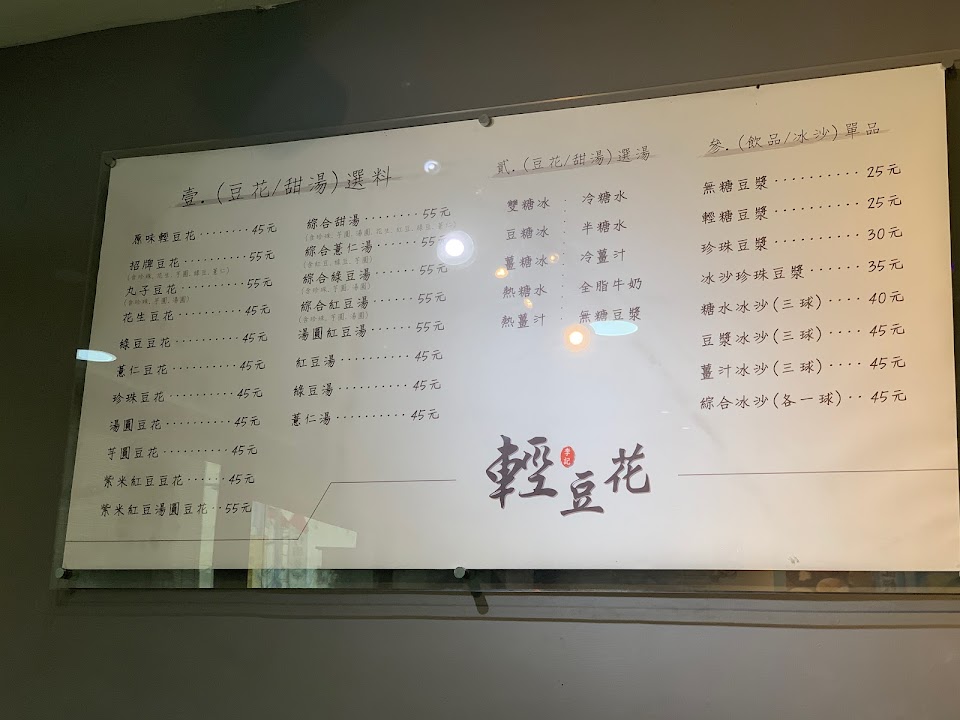 壹. (豆花/甜湯)選料
原味輕豆花········45元
招牌豆花··········55元
丸子豆花··········55元
(含珍珠, 芋圓, 湯圓)
花生豆花··········45元
綠豆豆花··········45元
薏仁豆花··········45元
珍珠豆花··········45元
湯圓豆花··········45元
芋圓豆花··········45元
紫米紅豆豆花······45元
紫米紅豆湯圓豆花··55元
綜合甜湯·········55元
綜合薏仁湯·······55元
(含紅豆, 綠豆, 芋圓)
綜合綠豆湯·······55元
(含珍珠, 芋圓, 湯圓)
綜合紅豆湯·······55元
(含珍珠, 芋圓, 湯圓)
湯圓紅豆湯·······55元
紅豆湯··········45元
綠豆湯··········45元
薏仁湯··········45元
貳. (豆花/甜湯)選湯
雙糖冰 : 冷糖水
豆糖冰 : 半糖水
薑糖冰 : 冷薑汁
熱糖水 : 全脂牛奶
熱薑汁 : 無糖豆漿
參. (飲品/冰沙)單品
無糖豆漿··········25元
輕糖豆漿··········25元
珍珠豆漿··········30元
冰沙珍珠豆漿······35元
糖水冰沙(三球)····40元
豆漿冰沙(三球)····45元
薑汁冰沙(三球)····45元
綜合冰沙(各一球)··45元
輕豆花
李記